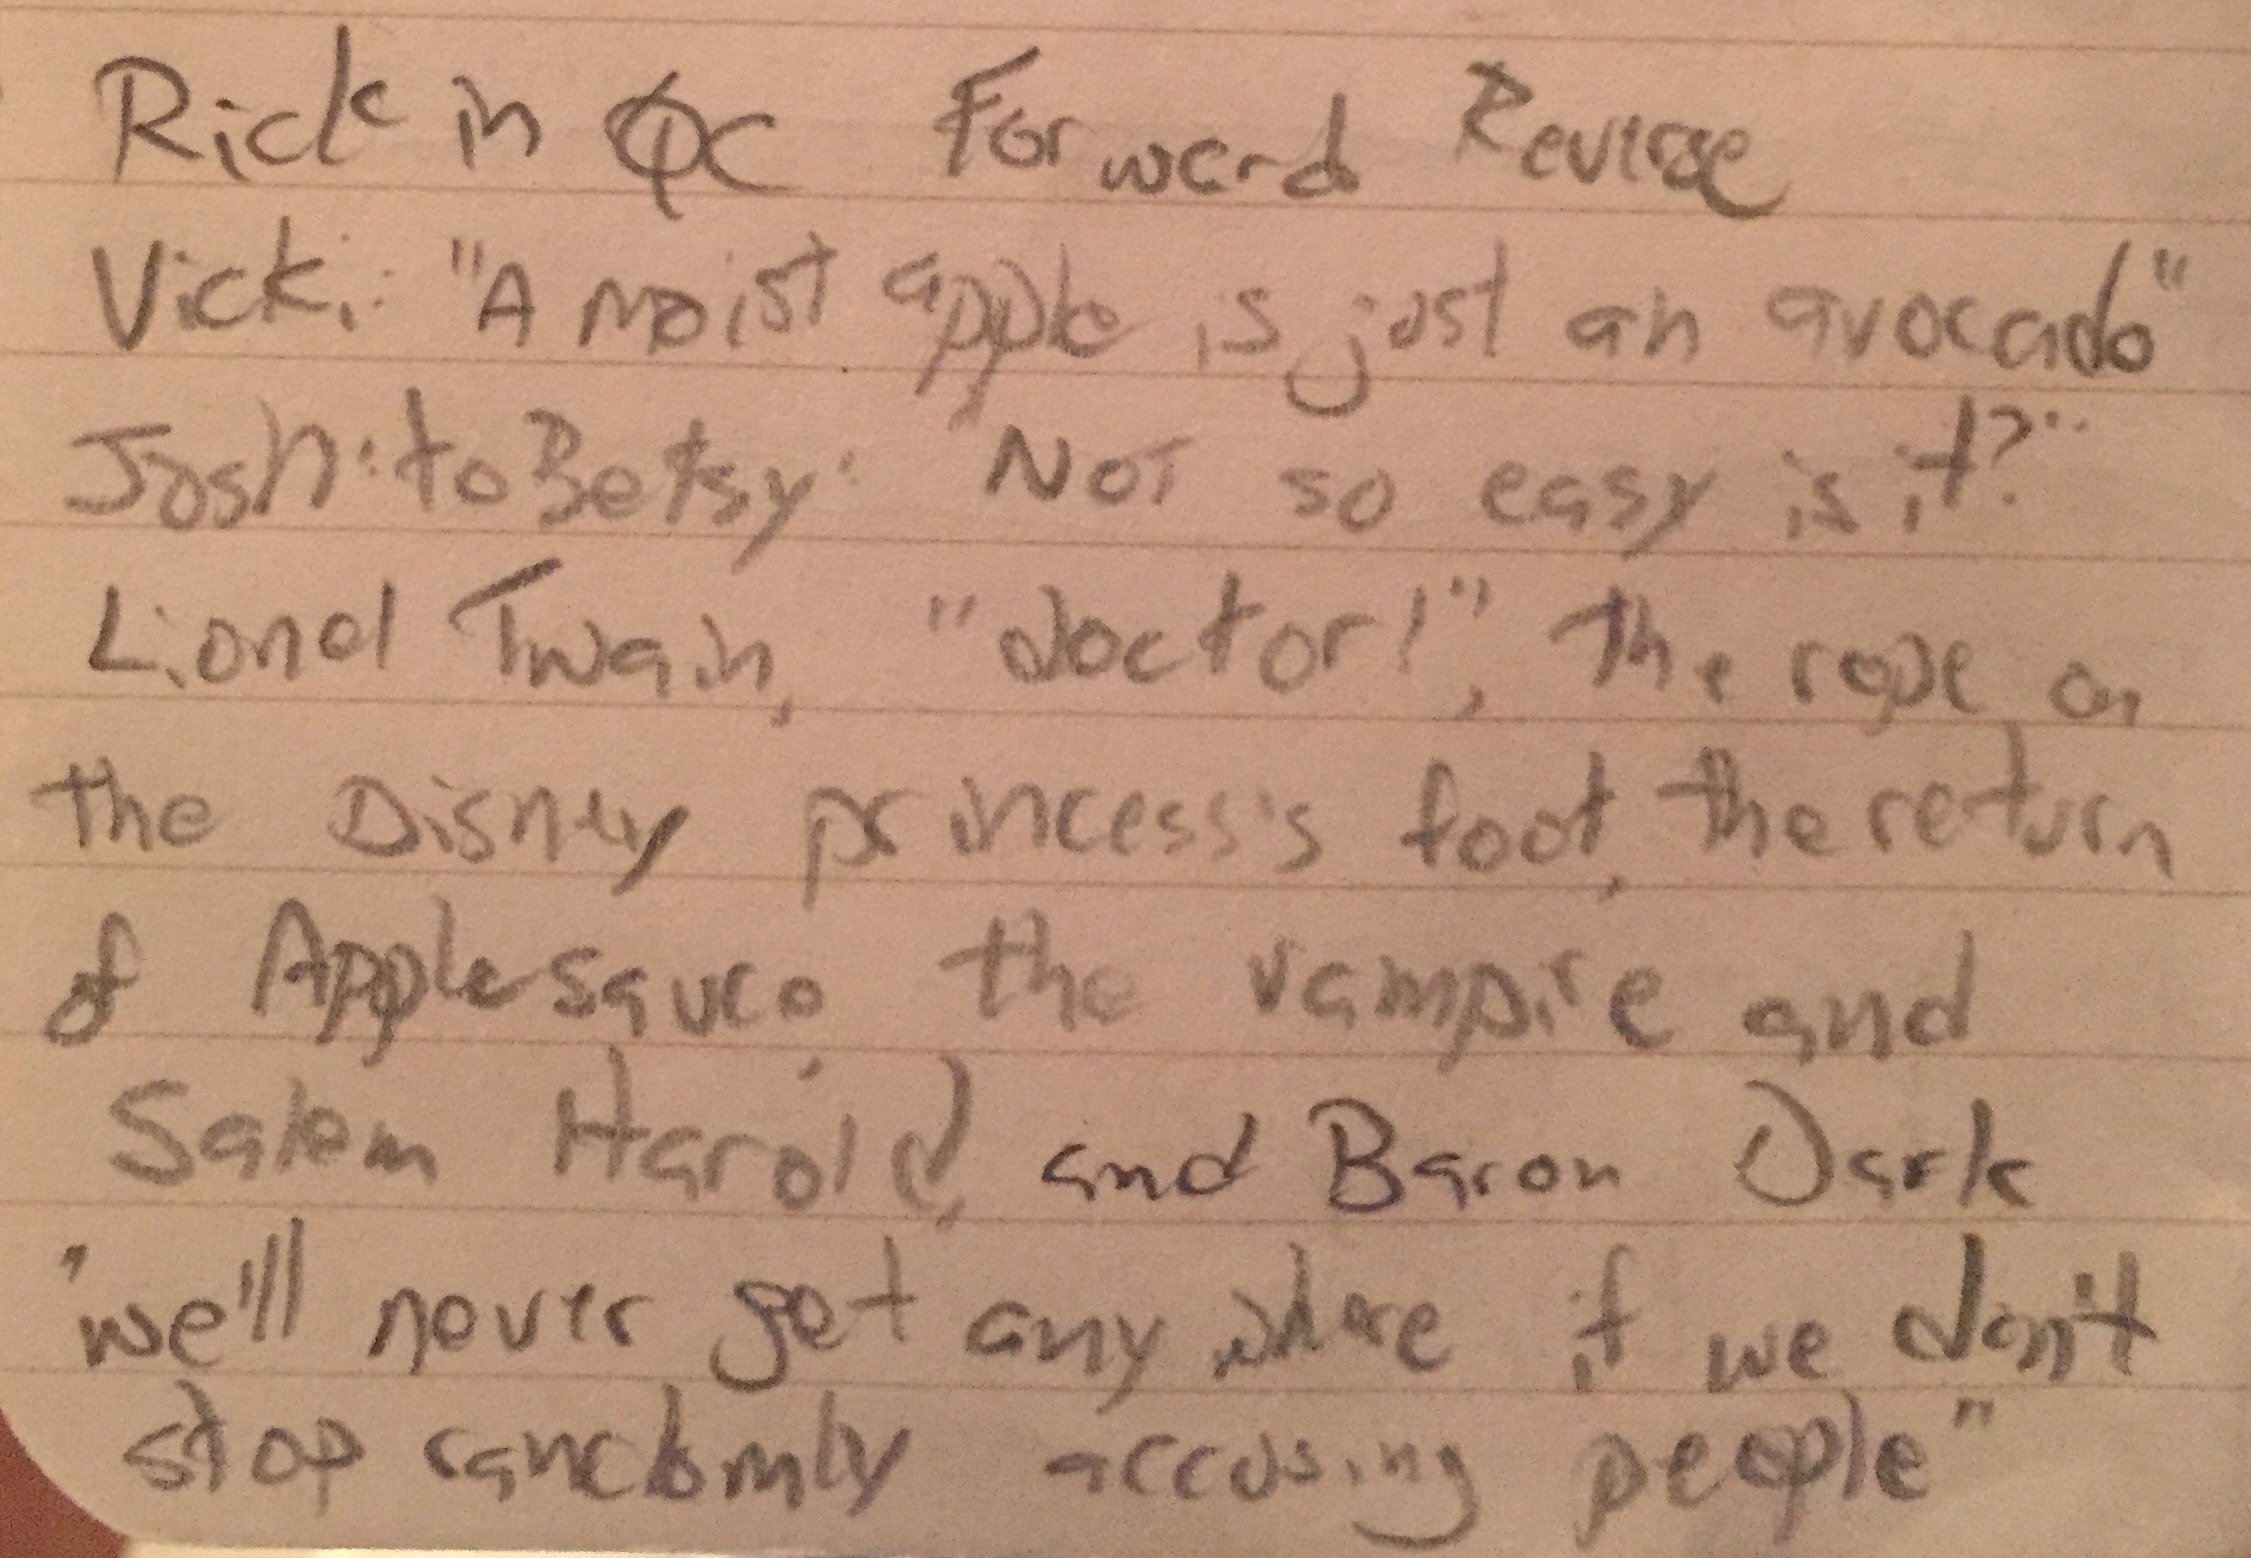 Rick in QC Forward Reverse
Vicki: "A moist apple is just an avocado"
Josh: to Betsy: "Not so easy is it?"
Lionel Twain, "doctor!", the rope on
the Disney princess's foot, the return
of Applesauce, the vampire and
Salem Harold, and Baron Dark
"we'll never get anywhere if we don't
stop randomly accusing people"